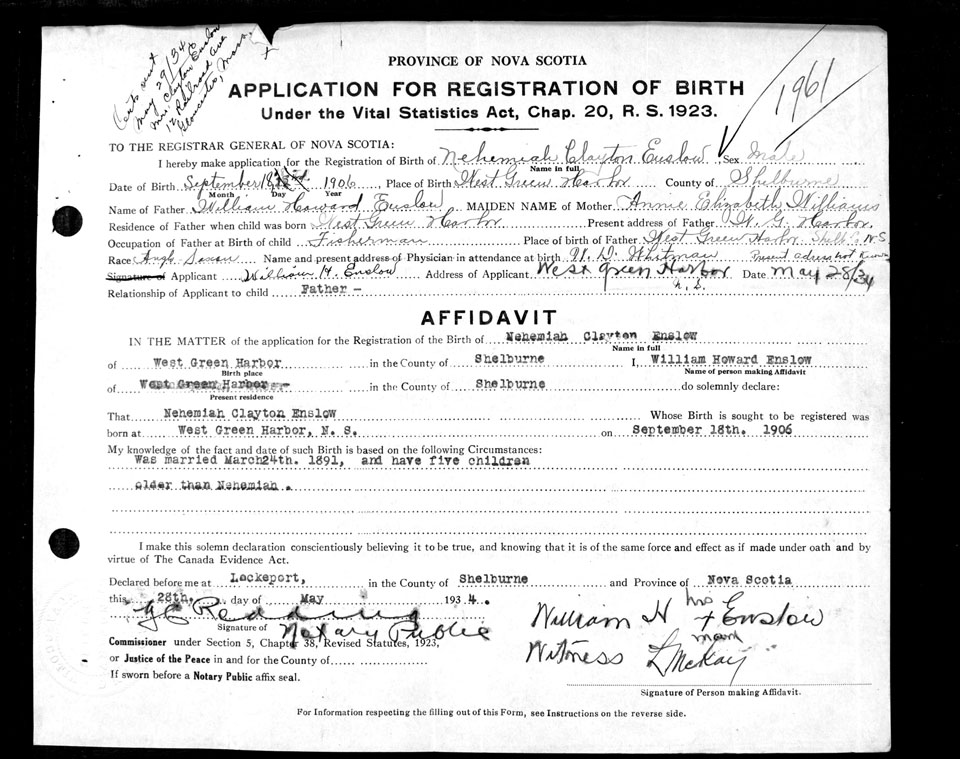 Cert. sent
May 29/34 to
Mrs. Clayton Enslow
12 Railroad Ave
Gloucester, Mass.
x
1961
PROVINCE OF NOVA SCOTIA
APPLICATION FOR REGISTRATION OF BIRTH
Under the Vital Statistics Act, Chap. 20, R. S. 1923.
TO THE REGISTRAR GENERAL OF NOVA SCOTIA:
I hereby make application for the Registration of Birth of Nehemiah Clayton Enslow Sex Male
Name in full
Date of Birth September 18 1906 Place of Birth West Green Harbor County of Shelburne
Month Day Year
Name of Father William Howard Enslow MAIDEN NAME of Mother Annie Elizabeth Williams
Residence of Father when child was born West Green Harbor Present address of Father W. G. Harbor.
Occupation of Father at Birth of child Fisherman Place of birth of Father West Green Harbor Shelb Co N.S.
Race Anglo Saxon Name and present address of Physician in attendance at birth D. Whitman Present adress not known
Signature of Applicant William H. Enslow Address of Applicant West Green Harbor Date May 28/34
N. S.
Relationship of Applicant to child Father -
AFFIDAVIT
IN THE MATTER of the application for the Registration of the Birth of Nehemiah Clayton Enslow
Name in full
of West Green Harbor in the County of Shelburne I, William Howard Enslow
Birth place Name of person making Affidavit
of West Green Harbor - in the County of Shelburne do solemnly declare:
Present residence
That Nehemiah Clayton Enslow Whose Birth is sought to be registered was
born at West Green Harbor, N. S. on September 18th. 1906
My knowledge of the fact and date of such Birth is based on the following Circumstances:
Was married March24th. 1891, and have five children
older than Nehemiah .
I make this solemn declaration conscientiously believing it to be true, and knowing that it is of the same force and effect as if made under oath and by
virtue of The Canada Evidence Act.
Declared before me at Lockeport, in the County of Shelburne and Province of Nova Scotia
this 28th. day of May 1934.
Redding
Signature of
Notary Public
William H his x mark Enslow
Witness L McKay
Commissioner under Section 5, Chapter 38, Revised Statutes, 1923,
or Justice of the Peace in and for the County of
If sworn before a Notary Public affix seal.
Signature of Person making Affidavit.
For Information respecting the filling out of this Form, see Instructions on the reverse side.